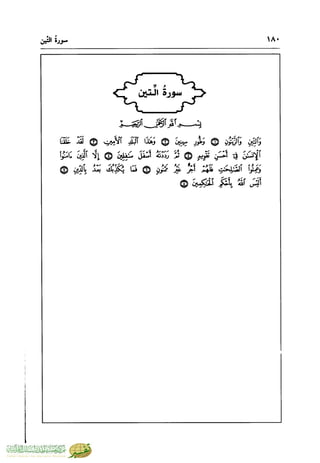 ١٨٠
سورة التين
سورة التين
بسم الله الرحمن الرحيم
والتين والزيتون ١ وطور سينين ٢ وهذا البلد الأمين ٣ لقد خلقنا
الإنسان في أحسن تقويم ٤ ثم رددناه أسفل سافلين ٥ إلا الذين ءامنوا
وعملوا الصالحات فلهم أجر غير ممنون ٦ فما يكذبك بعد بالدين ٧
أليس الله بأحكم الحاكمين ٨